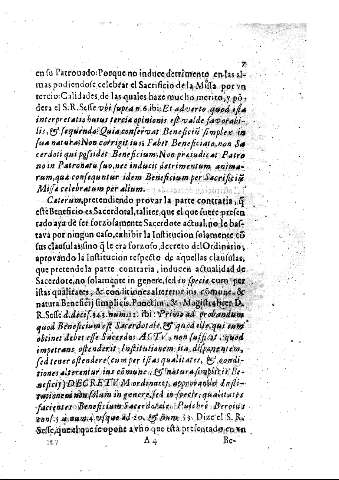 7
en su Patronado: Porque no induce detrimento en las al-
mas pudiendose celebrar el Sacrificio de la Missa por vn
tercio: Calidades, de las quales haze mucho merito, y pó-
dera el S.R. Sesse vbi supra n.6. ibi: Et adverto quod ista
interpretatio huius tercia opinionis est valde favorabi-
lis, & sequenda: Quia conservat Beneficiũ simplex in
sua natura: Non corrigit iuris Fabet Beneficiato, non Sa
cerdoti qui possidet Beneficium: Non preiudicat Patro
no in Patronatu suo, nec inducit detrimentum anima-
rum, qua consequuntur idem Beneficium per Sacrificiũ
Missa celebratum per alium.
Caterum, pretendiendo provar la parte contraria, q̃
este Beneficio es Sacerdotal, taliter, que el que fuere presen
tado aya de ser forzosamente Sacerdote actual, no le bas-
tava por ningun caso, exhibir la Institucion solamente cõ
sus clausulas sino q̃ le era forzoso, decreto del Ordinario,
aprovando la Institucion respecto de aquellas clausulas,
que pretende la parte contraria, inducen actualidad de
Sacerdote, no solamente in genere, sed in specie cum per
istas qualitates, & conditiones alteretur ius cõmune, &
natura Beneficij simplicis. Punctim, & Magistraliter D.
R. Sesse d. decis. 343. num. 12. ibi: Primo ad probandum
quod Beneficium est Sacerdotale, & quod ille, qui eum
obtinet debet esse Sacerdos ACTV, non sufficit, quod
impetrans ostenderit Institutionem ita disponentem,
sed tenet ostendere (cum per istas qualitates, & condi-
tiones alterentur ius cõmune, & natura simplicis Be-
neficij) DECRETVM ordinarij, approbando Insti-
tutionem non solum in genere, sed in specie, qualitates
facientes Beneficium Sacerdotale. Pulchrè Beroius
num. 4. vsque ad 20. & num. 33. Dize el S.R.
Sesse, que el que se opone a vno que esta presentado en vn
A 4 Be-